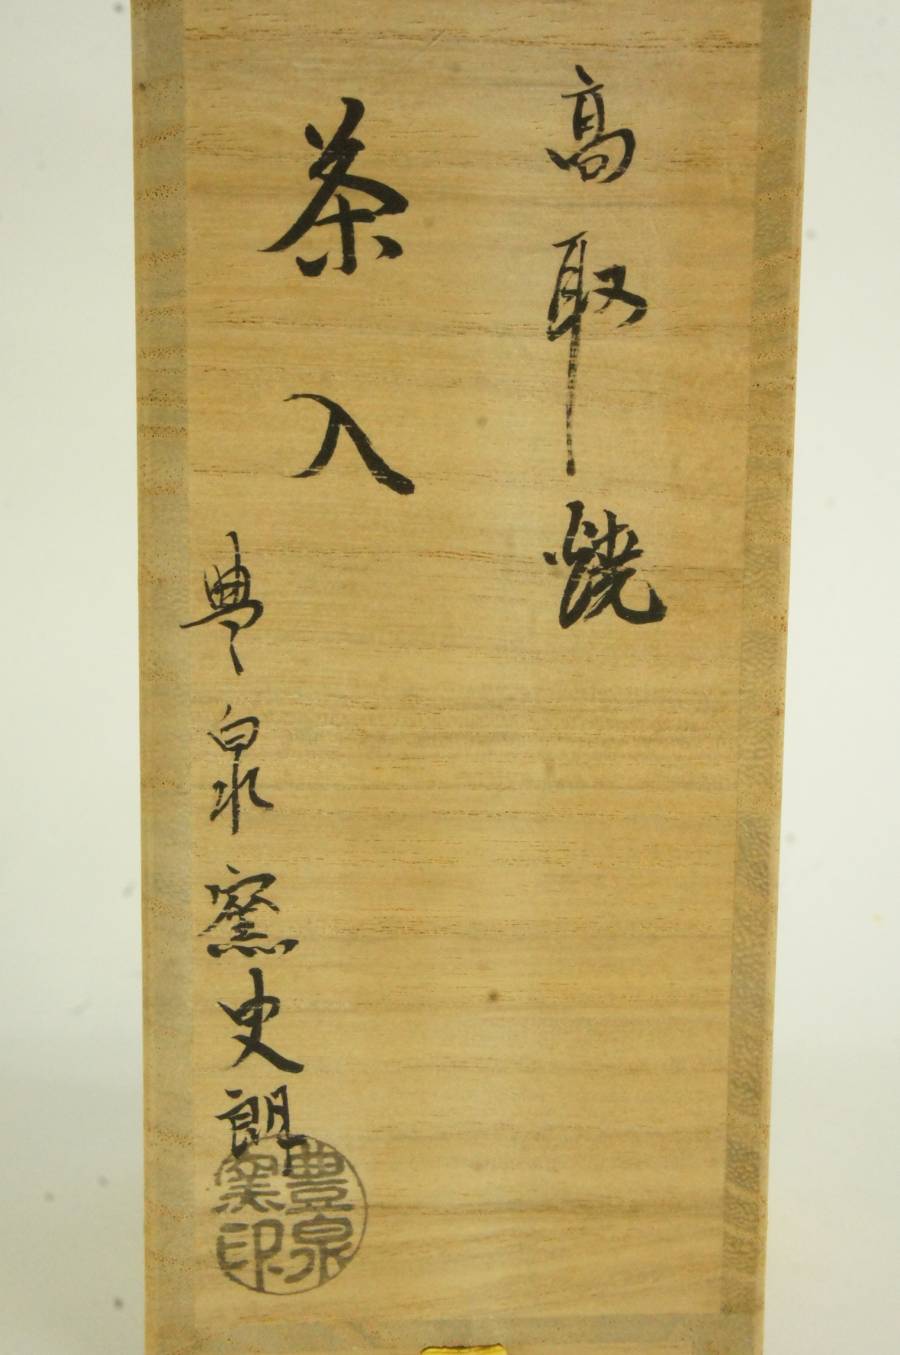 高取焼
茶入
豊泉窯史朗
豊泉窯印